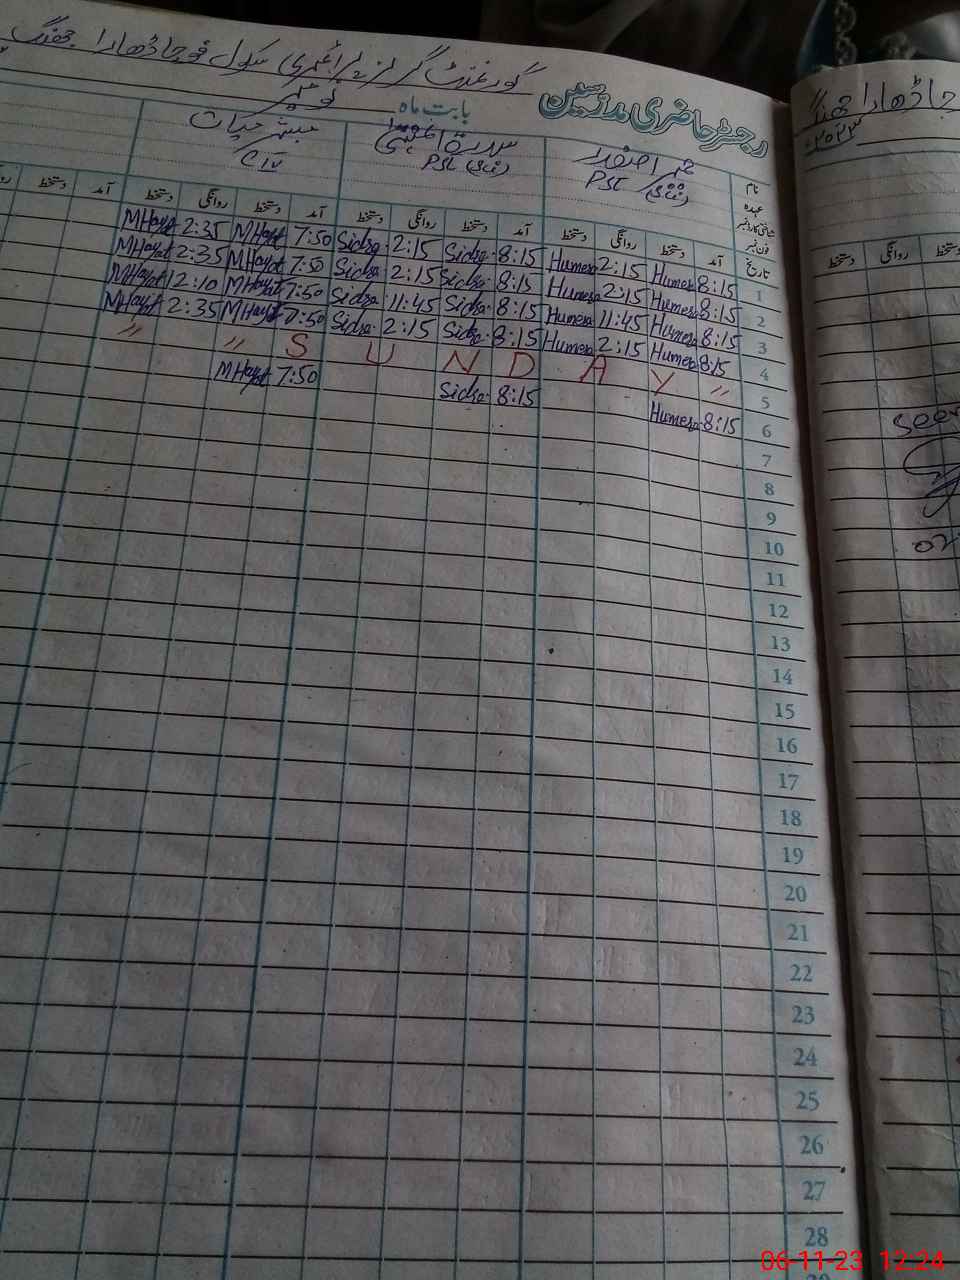 گورنمنٹ گرلز پرائمری سکول چاڈھارا جھنگ
رجسٹر حاضری مدرسین بابت ماہ نومبر
نام
عہدہ
شناختی کارڈ نمبر
فون نمبر
تاریخ
PST
سدرۃ
PST
مبشر حیات
CIV
آمد دستخط روانگی دستخط آمد دستخط روانگی دستخط آمد دستخط روانگی دستخط آمد دستخط
1 8:15 Humera 2:15 Humera 8:15 Sidra 2:15 Sidra 7:50 MHayat 2:35 MHayat
2 8:15 Humera 2:15 Humera 8:15 Sidra 2:15 Sidra 7:50 MHayat 2:35 MHayat
3 8:15 Humera 11:45 Humera 8:15 Sidra 11:45 Sidra 7:50 MHayat 12:10 MHayat
4 8:15 Humera 2:15 Humera 8:15 Sidra 2:15 Sidra 7:50 MHayat 2:35 MHayat
5 " " S U N D A Y "
6 8:15 Humera 8:15 Sidra 7:50 MHayat
7
8
9
10
11
12
13
14
15
16
17
18
19
20
21
22
23
24
25
26
27
28
چاڈھارا جھنگ
۲۰۲۳
دستخط روانگی دستخط
seen
06-11-23 12:24